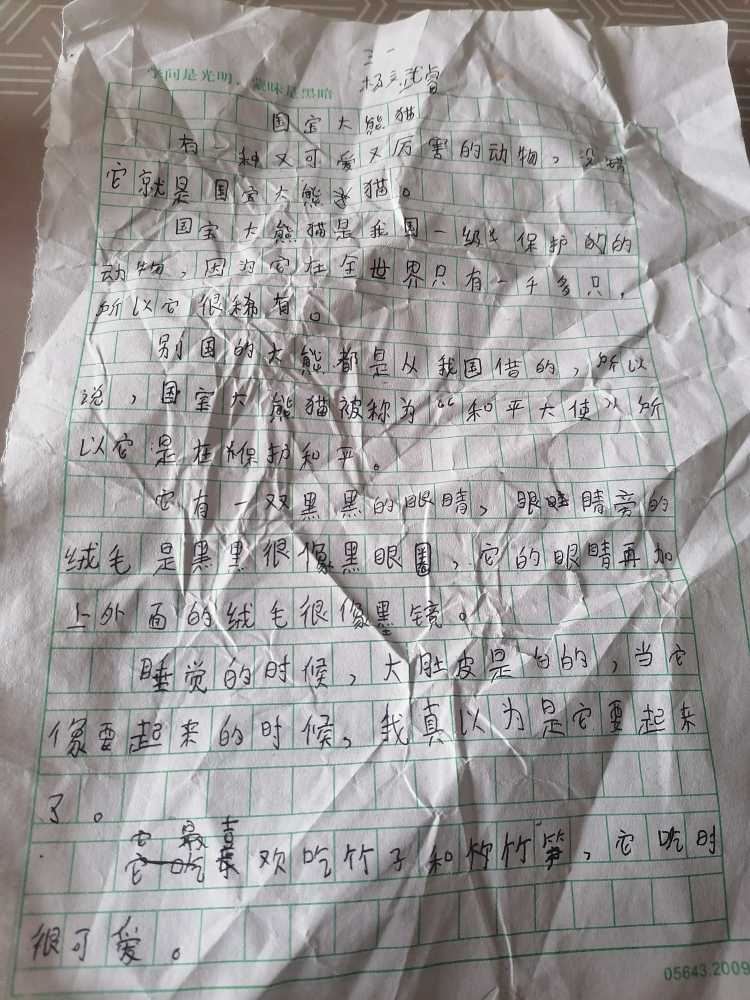 三一
学问是光明，蒙昧是黑暗
杨
国宝大熊猫
有一种又可爱又厉害的动物，没错
它就是国宝大熊猫。
国宝大熊猫是我国一级保护的的
动物，因为它在全世界只有一千多只，
所以它很稀有。
别国的大熊都是从我国借的，所以
说，国宝大熊猫被称为“和平大使”所
以它是在保护和平。
它有一双黑黑的眼睛，眼睛旁的
绒毛是黑黑很像黑眼圈，它的眼睛再加
上外面的绒毛很像墨镜。
睡觉的时候，大肚皮是白的，当它
像要起来的时候，我真以为是它要起来
了。
它最喜
它吃欢吃竹子和竹笋，它吃时
很可爱。
05643.2009